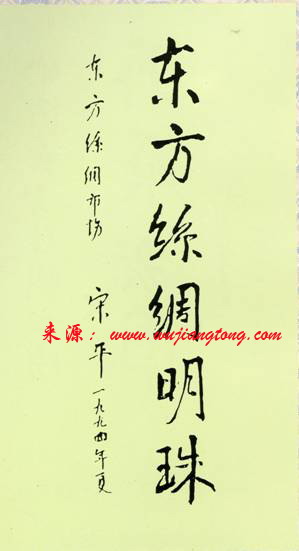 东方絲綢明珠
东方絲綢市场
宋平一九九四年夏
来源：www.wujiangtong.com